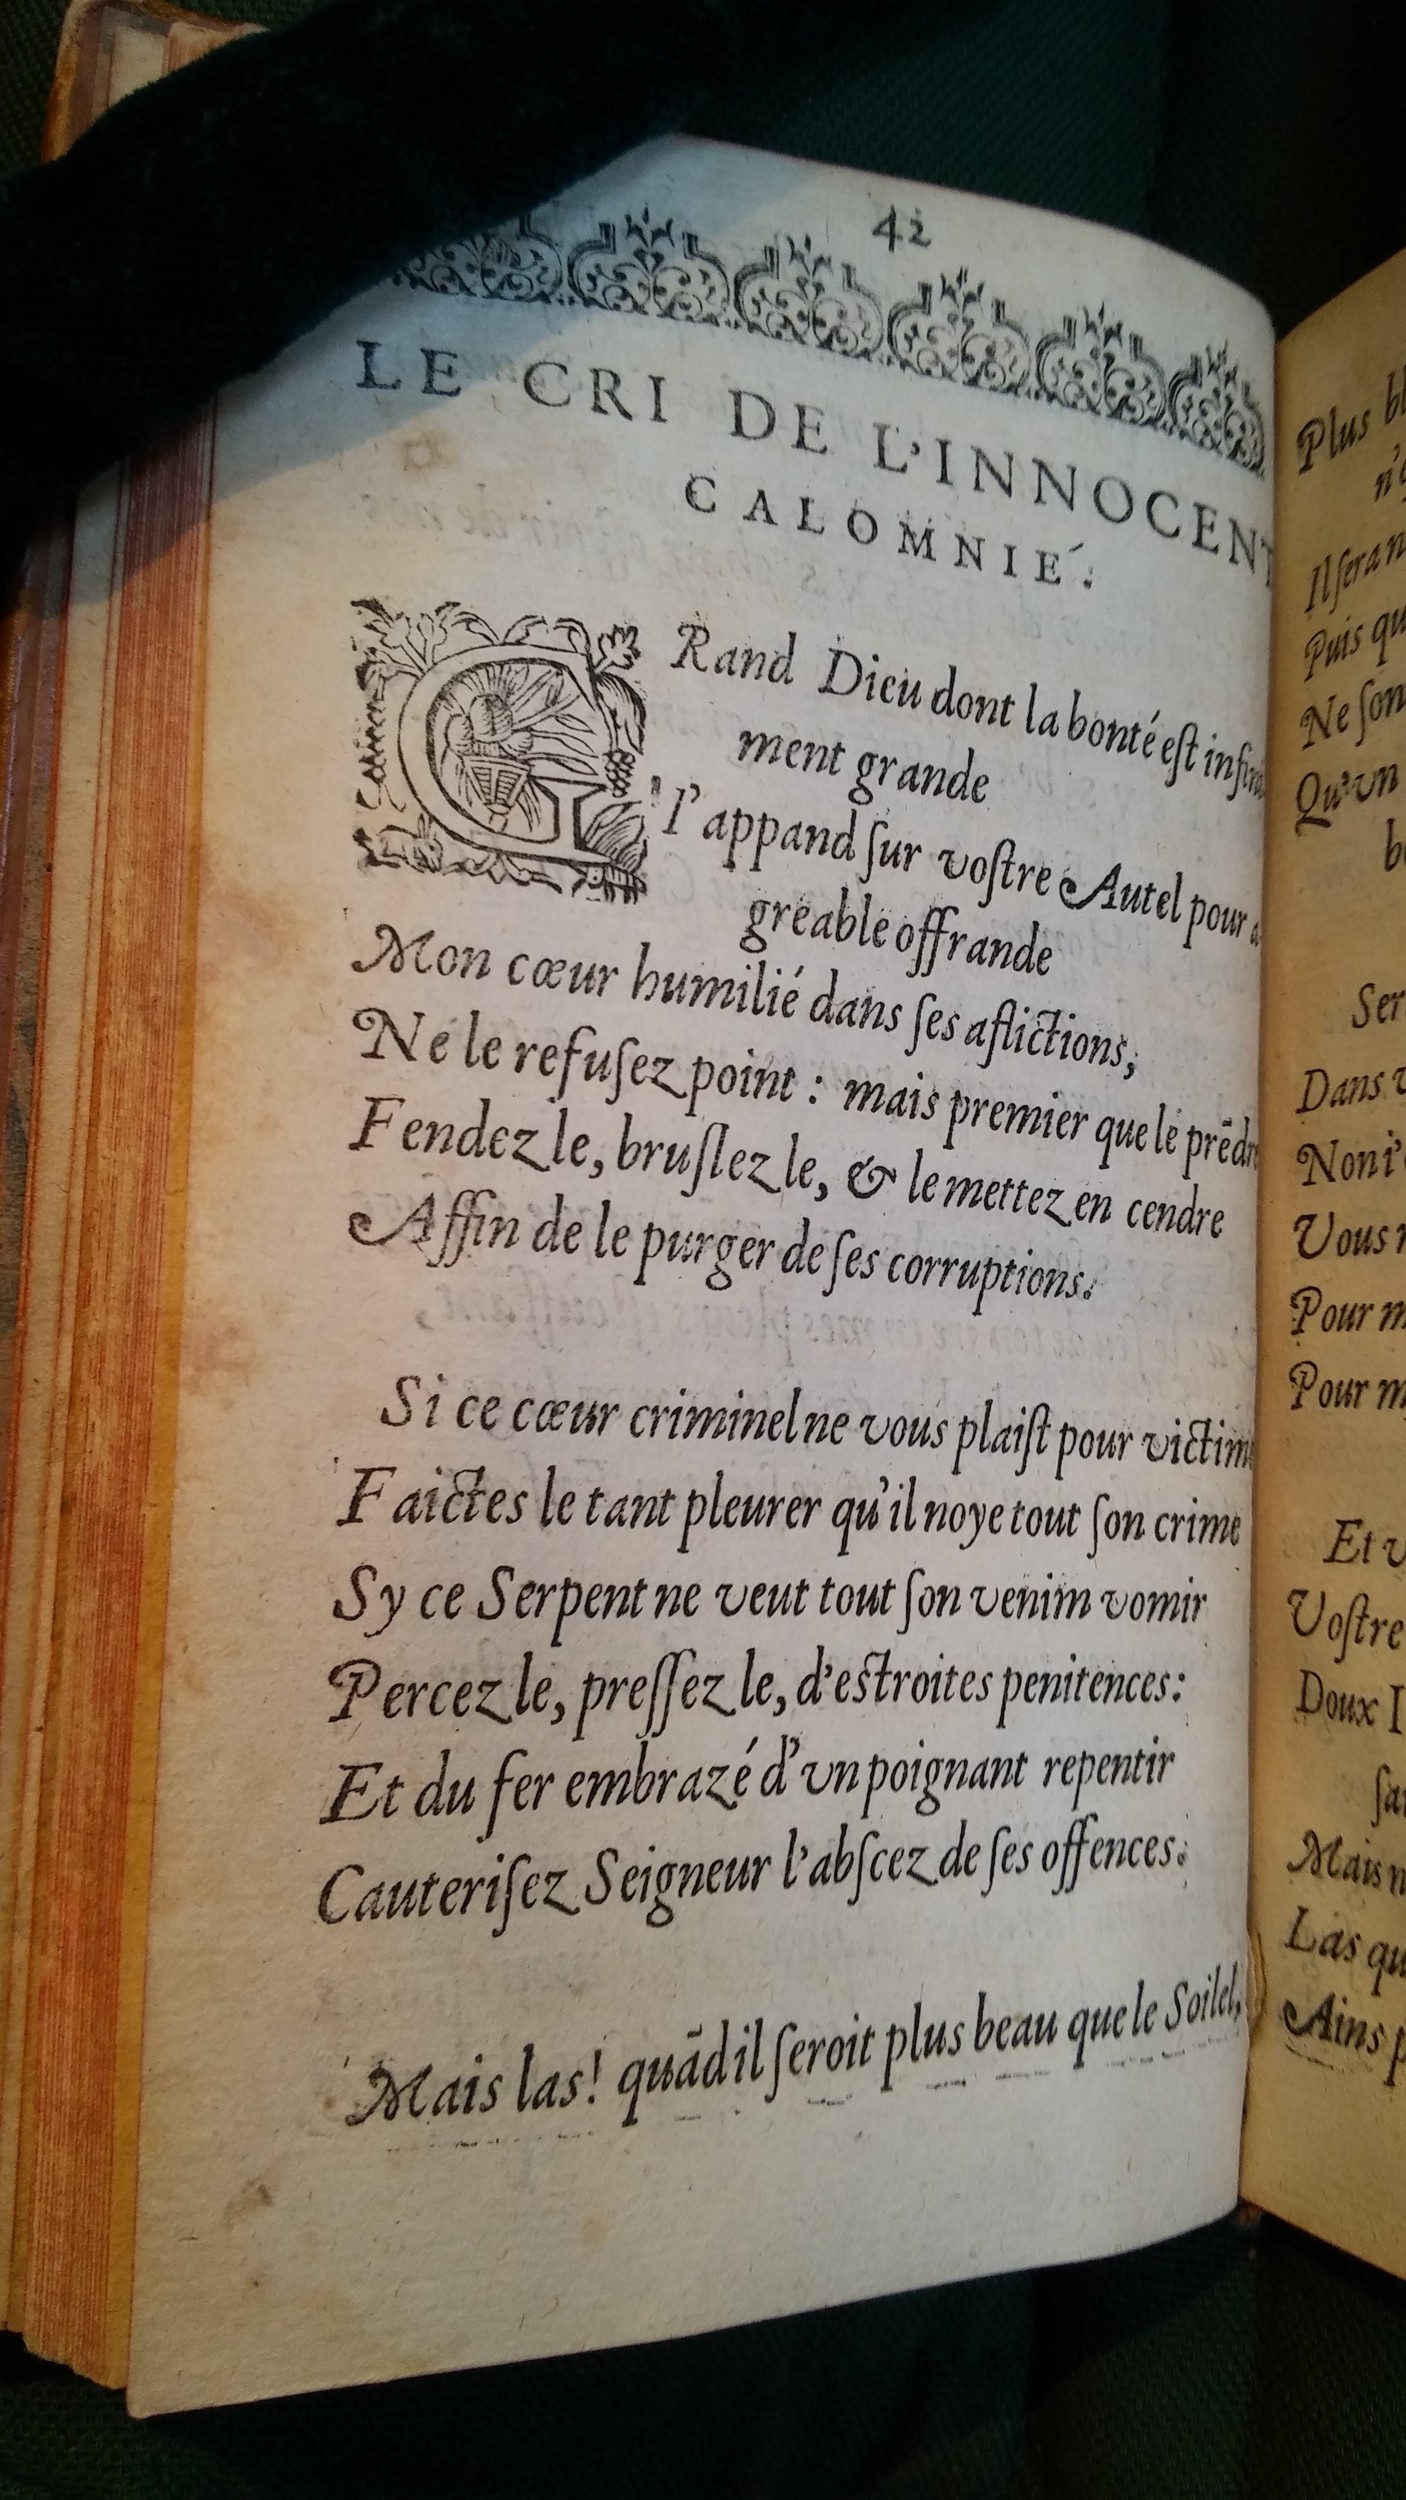 42
LE CRI DE L'INNOCENT
CALOMNIÉ.
GRand Dieu dont la bonté est infini
ment grande
I'appand ſur voſtre Autel pour a
greable offrande
Mon cœur humilié dans ſes aflictions,
Ne le refuſez point : mais premier que le prēdre
Fendez le, bruſlez le, & le mettez en cendre
Affin de le purger de ſes corruptions.
Si ce cœur criminel ne vous plaiſt pour victime
Faictes le tant pleurer qu'il noye tout ſon crime
Sy ce Serpent ne veut tout ſon venim vomir
Percez le, preſſez le, d'eſtroites penitences:
Et du fer embrazé d'vn poignant repentir
Cauteriſez Seigneur l'abſcez de ſes offences.
Mais las! quād il ſeroit plus beau que le Soilel,
Plus
Il ſera
Puis
Ne
Qu'vn
Dans
Non
Vous
Pour
Pour
Et
Voſtre
Doux
Mais
Las
Ains